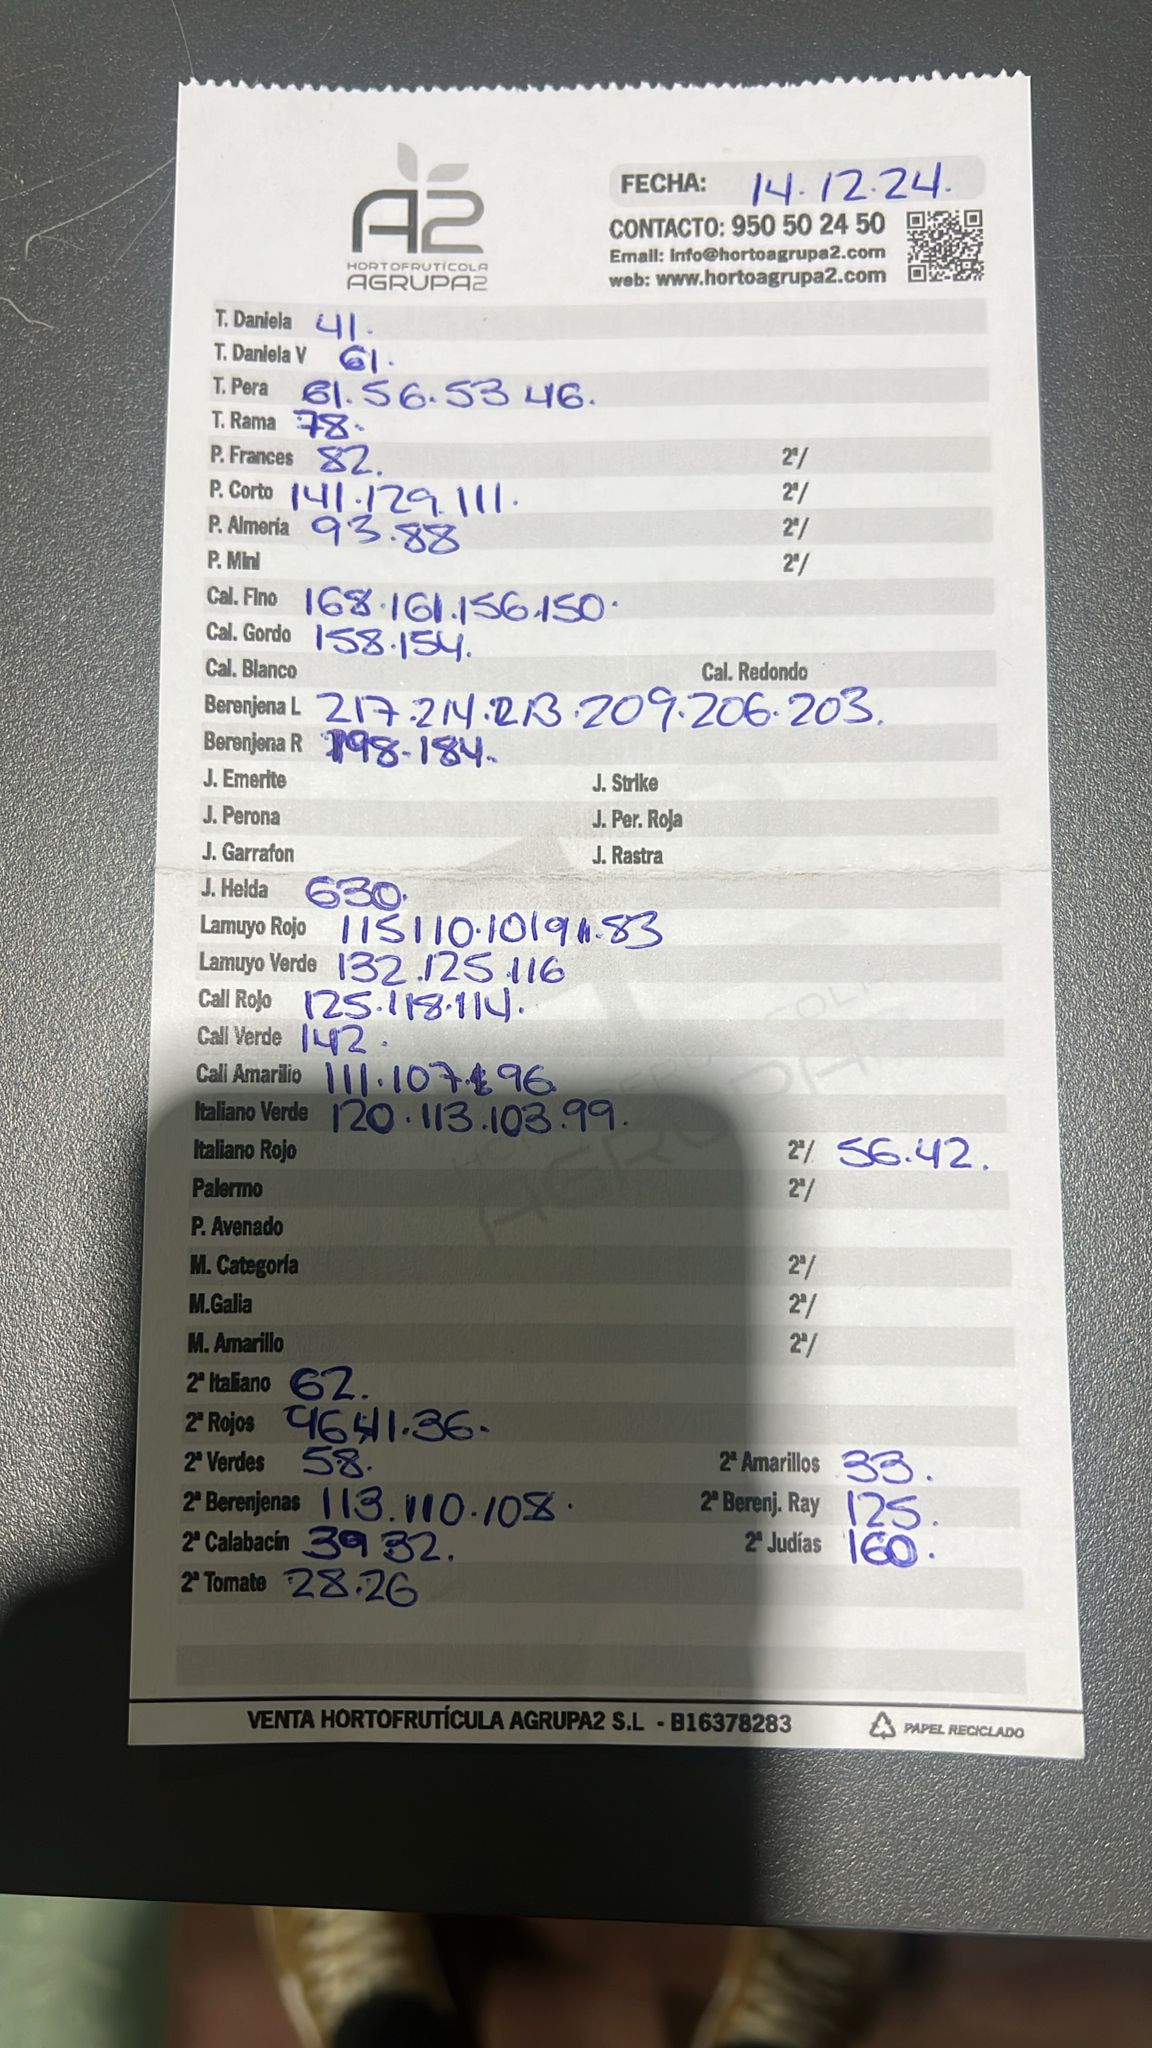 A2
HORTOFRUTÍCOLA
AGRUPA2
FECHA: 14.12.24.
CONTACTO: 950 50 24 50
Email: info@hortoagrupa2.com
web: www.hortoagrupa2.com
T. Daniela 41.
T. Daniela V 61.
T. Pera 61.56.53 46.
T. Rama 78.
P. Frances 82. 2ª/
P. Corto 141.129.111. 2ª/
P. Almería 93.88 2ª/
P. Mini 2ª/
Cal. Fino 168.161.156.150.
Cal. Gordo 158.154.
Cal. Blanco Cal. Redondo
Berenjena L 217.214.213.209.206.203.
Berenjena R 198.184.
J. Emerite J. Strike
J. Perona J. Per. Roja
J. Garrafon J. Rastra
J. Helda 630.
Lamuyo Rojo 115 110.101 91.83
Lamuyo Verde 132.125.116
Cali Rojo 125.118.114.
Cali Verde 142.
Cali Amarillo 111.107. 96.
Italiano Verde 120.113.103.99.
Italiano Rojo 2ª/ 56.42.
Palermo 2ª/
P. Avenado
M. Categoría 2ª/
M.Galia 2ª/
M. Amarillo 2ª/
2ª Italiano 62.
2ª Rojos 46.41.36.
2ª Verdes 58. 2ª Amarillos 33.
2ª Berenjenas 113.110.108. 2ª Berenj. Ray 125.
2ª Calabacín 39 32. 2ª Judías 160.
2ª Tomate 28.26
VENTA HORTOFRUTÍCULA AGRUPA2 S.L - B16378283
PAPEL RECICLADO